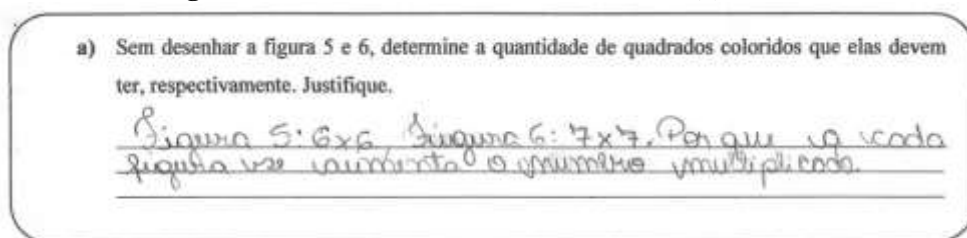 a) Sem desenhar a figura 5 e 6, determine a quantidade de quadrados coloridos que elas devem
ter, respectivamente. Justifique.
Figura 5: 6x6 Figura 6: 7x7. Por que a cada
figura se aumenta o numero multiplicado.